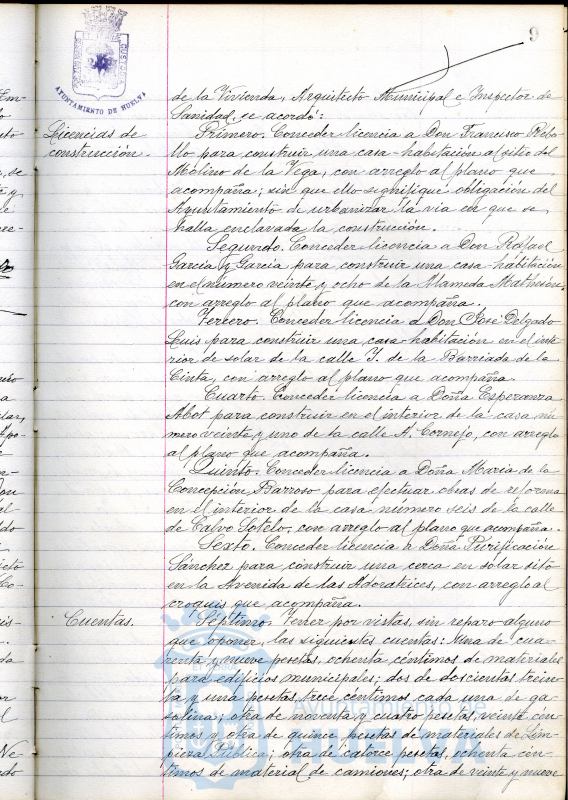 9
AYUNTAMIENTO DE HUELVA
de la Vivienda, Arquitecto Municipal e Inspector de
Sanidad se acordó:
Licencias de
construcción.
Primero. Conceder licencia a Don Francisco Rebo-
llo para construir una casa-habitación al sitio del
Molino de la Vega, con arreglo al plano que
acompaña; sin que ello signifique obligación del
Ayuntamiento de urbanizar la via en que se
halla enclavada la construcción.
Segundo. Conceder licencia a Don Rafael
Garcia y Garcia para construir una casa-habitación
en el número veinte y ocho de la Alameda
con arreglo al plano que acompaña.
Tercero. Conceder licencia a Don José Delgado
Luis para construir una casa-habitación en el inte-
rior de solar de la calle Y. de la Barriada de la
Cinta, con arreglo al plano que acompaña.
Cuarto. Conceder licencia a Doña Esperanza
Abot para construir en el interior de la casa nú-
mero veinte y uno de la calle A. Cornejo, con arreglo
al plano que acompaña.
Quinto. Conceder licencia a Doña Maria de la
Concepción Barroso para efectuar obras de reforma
en el interior de la casa número seis de la calle
de Calvo Sotelo, con arreglo al plano que acompaña.
Sexto. Conceder licencia a Doña Purificación
Sánchez para construir una cerca en solar sito
en la Avenida de las Adoratrices, con arreglo al
croquis que acompaña.
Cuentas.
Séptimo. Tener por vistas, sin reparo alguno
que oponer, las siguientes cuentas: Una de cua-
renta y nueve pesetas, ochenta céntimos de materiales
para edificios municipales; dos de doscientas trein-
ta y una pesetas, trece céntimos cada una de ga-
solina; otra de noventa y cuatro pesetas, veinte cén-
timos y otra de quince pesetas de materiales de Lim-
pieza Pública; otra de catorce pesetas, ochenta cén-
timos de material de camiones; otra de veinte y nueve
Ayuntamiento de